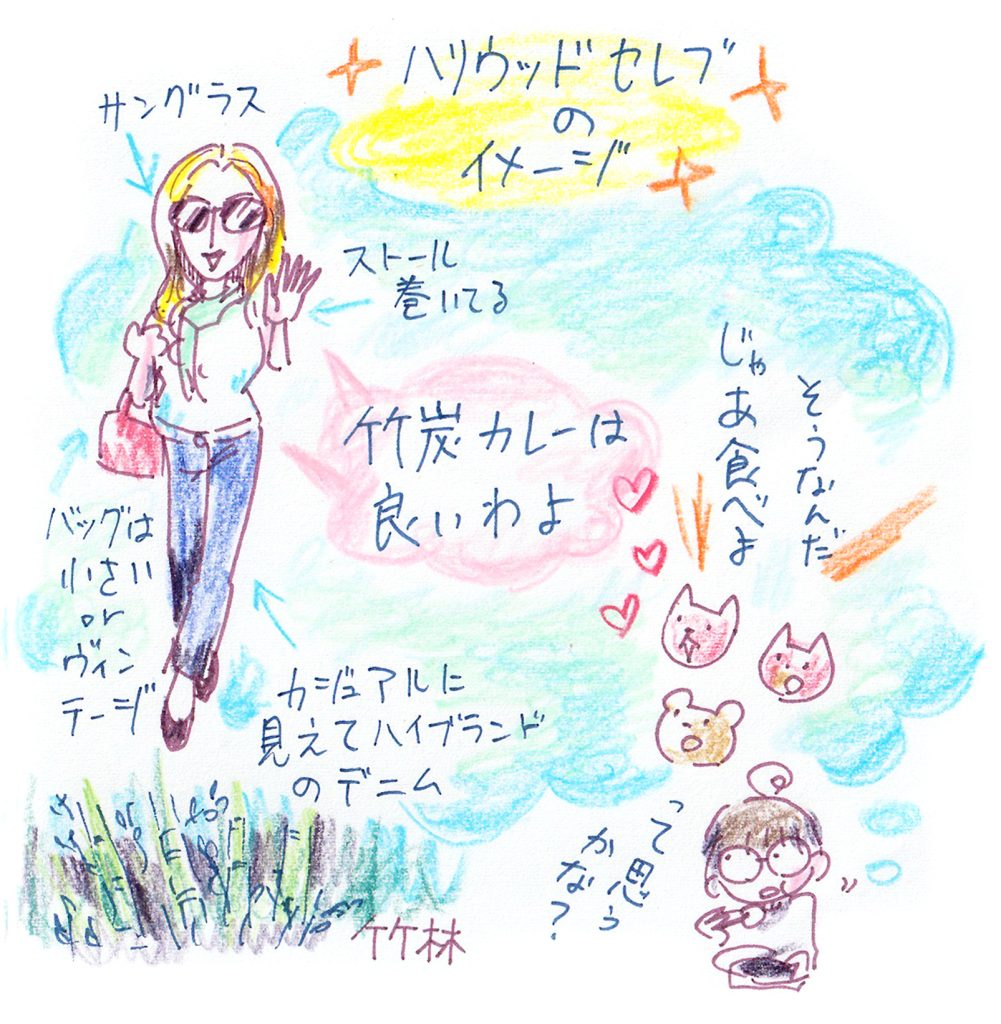 ハリウッドセレブ
の
イメージ
サングラス
ストール
巻いてる
竹炭カレーは
良いわよ
そうなんだ
じゃあ食べよ
バッグは
小さい
or
ヴィン
テージ
カジュアルに
見えてハイブランド
のデニム
って思う
かな?
竹林